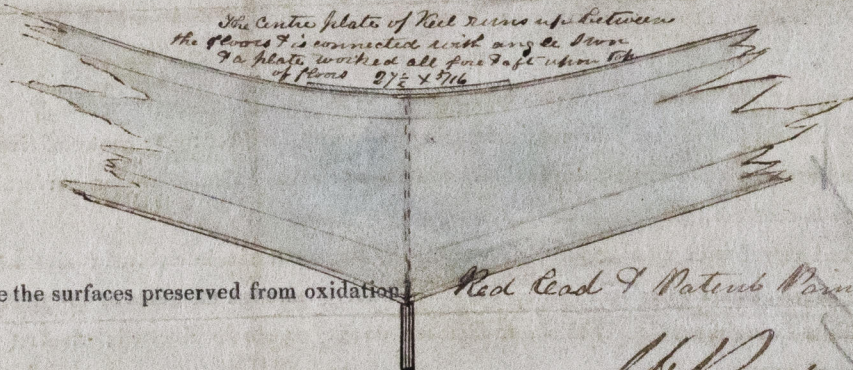 The Centre plate of Keel runs up between
the floors & is connected with angle Iron
& a plate worked all fore & aft upon top
of floors 27½ x 5/16
e the surfaces preserved from oxidation Red Lead & Patent